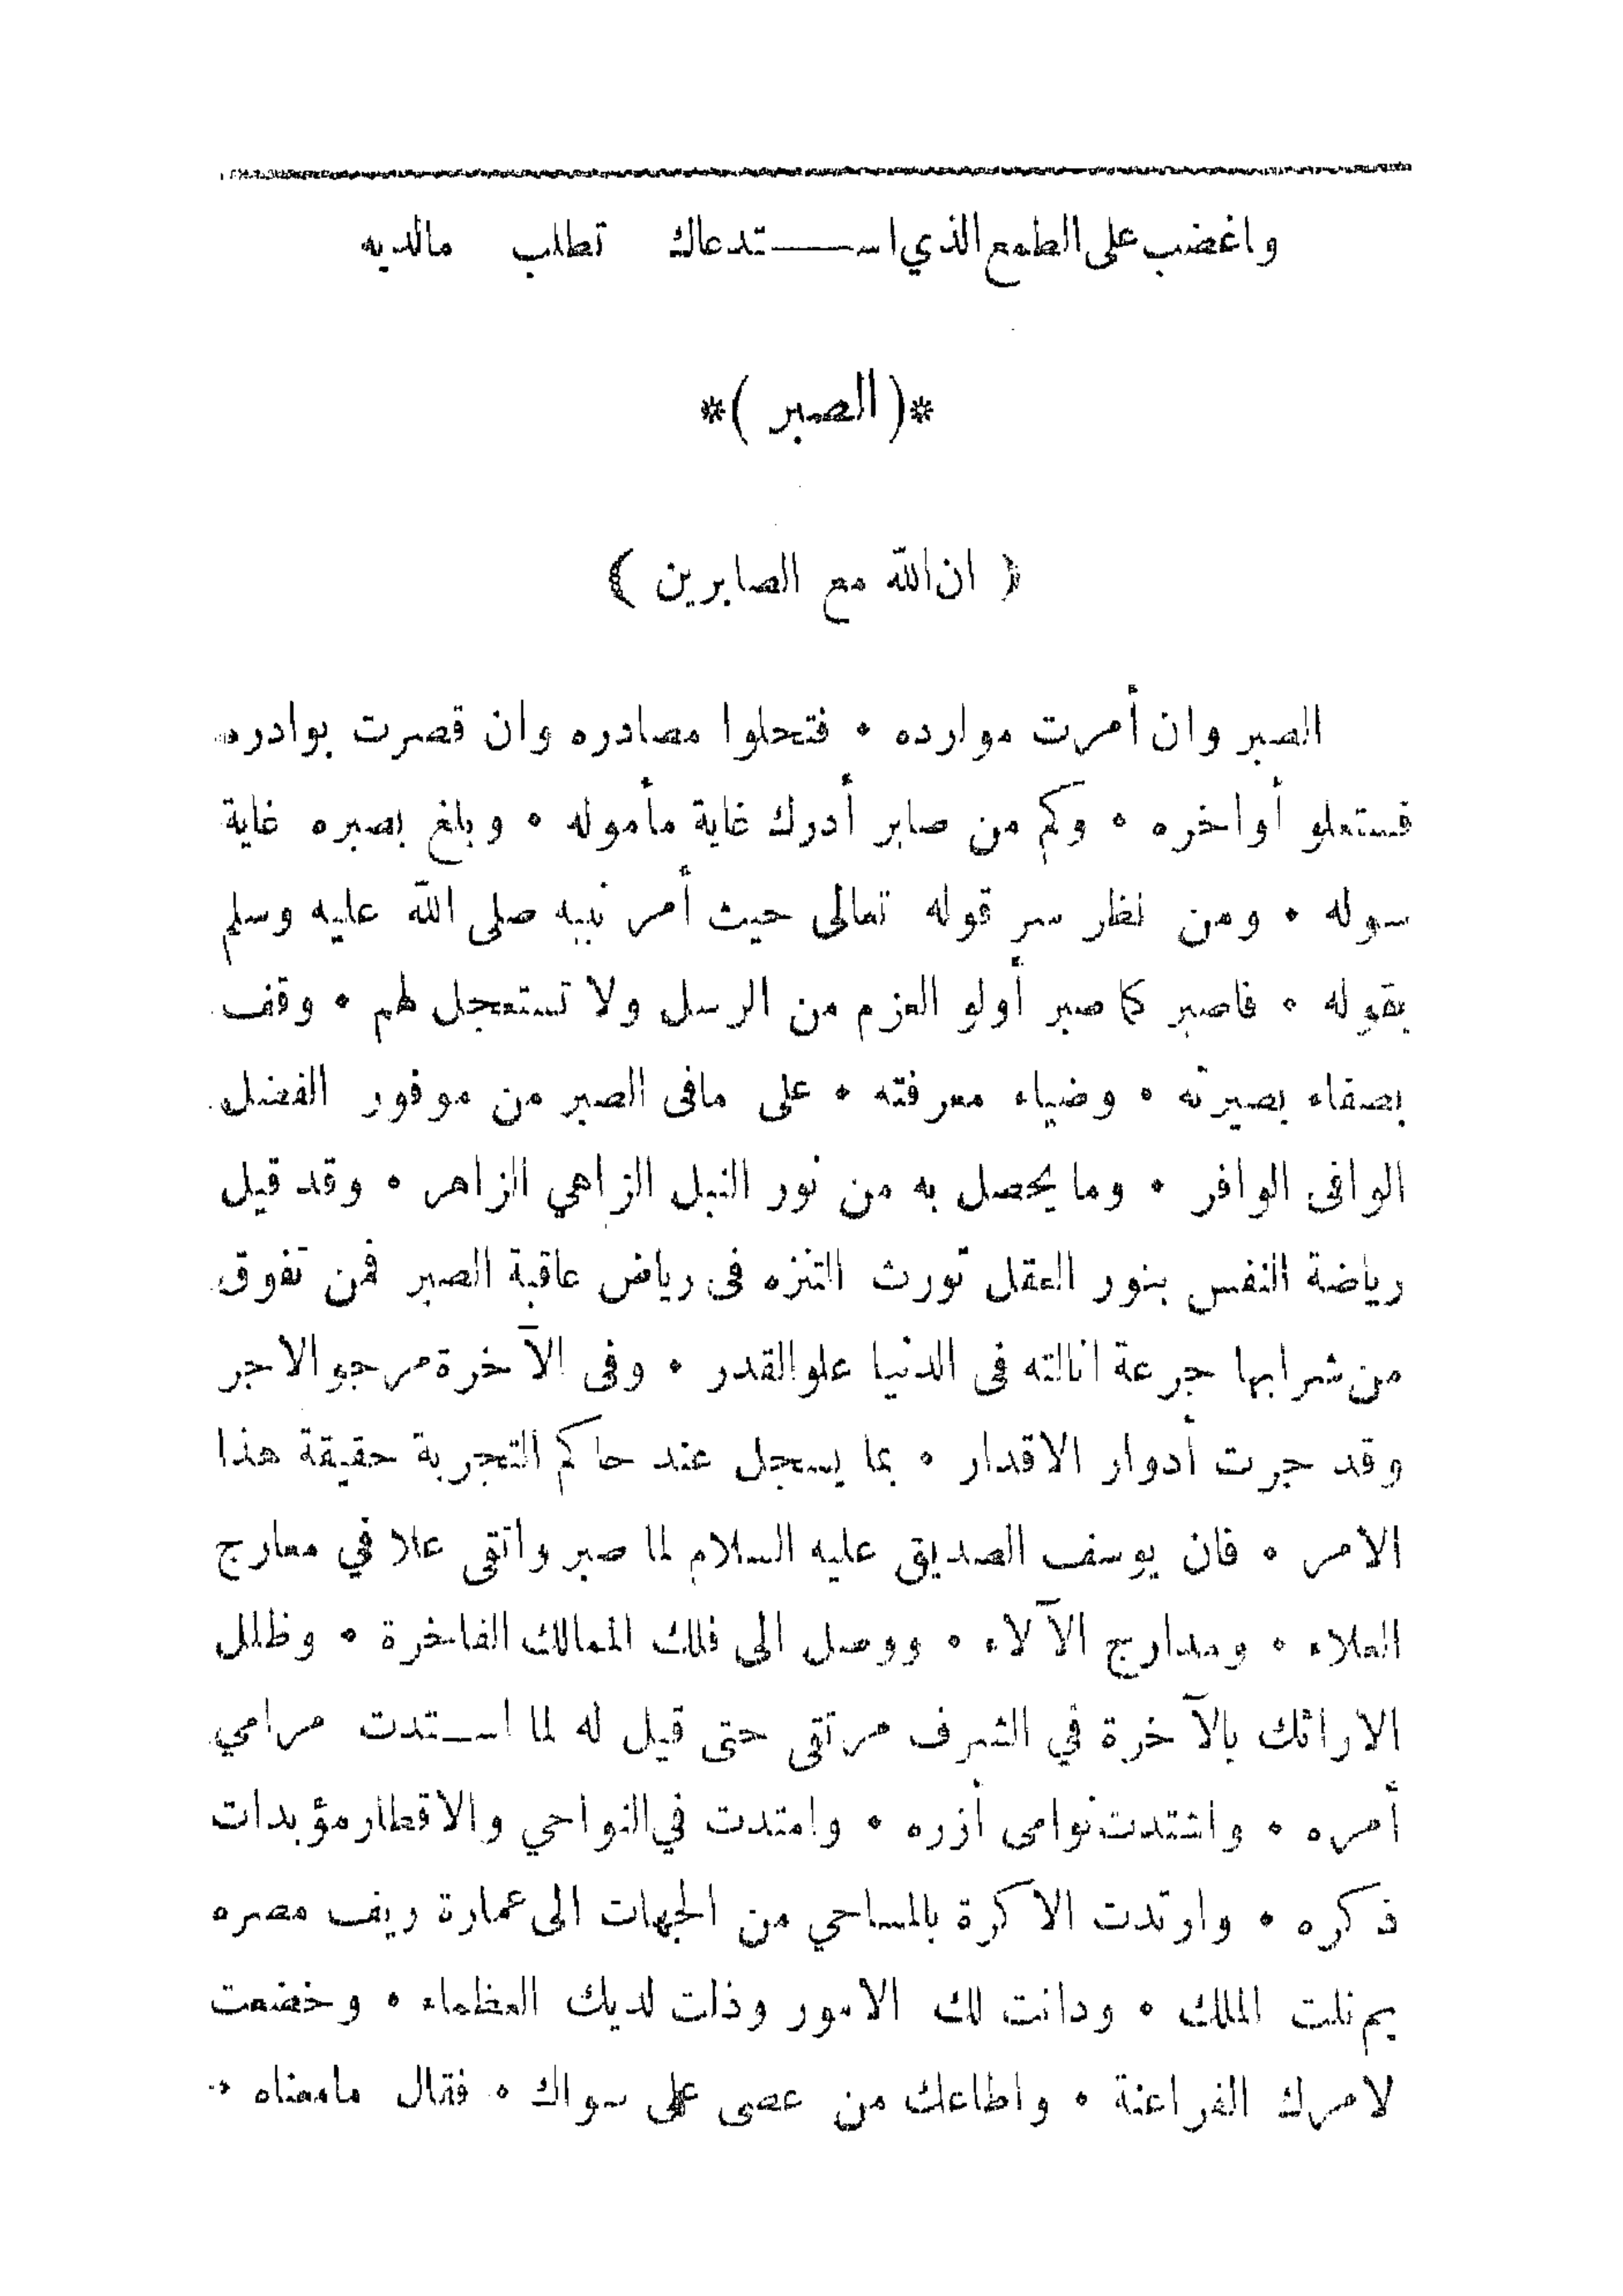 واغضب على الطمع الذي استدعاك تطلب مالديه
*( الصبر )*
( ان الله مع الصابرين )
الصبر وان أمرت موارده • فتحلوا مصادره وان قصرت بوادره
فستعلو أواخره • وكم من صابر أدرك غاية مأموله • وبلغ بصبره غاية
سوله • ومن نظر سر قوله تعالى حيث أمر نبيه صلى الله عليه وسلم
بقوله • فاصبر كما صبر أولو العزم من الرسل ولا تستعجل لهم • وقف
بصفاء بصيرته • وضياء معرفته • على مافى الصبر من موفور الفضل
الوافى الوافر • وما يحصل به من نور النبل الزاهي الزاهر • وقد قيل
رياضة النفس بنور العقل تورث التنزه فى رياض عاقبة الصبر فمن تفوق
من شرابها جرعة انالته فى الدنيا علو القدر • وفى الآخرة مرجو الاجر
وقد جرت أدوار الاقدار • بما يسجل عند حاكم التجربة حقيقة هذا
الامر • فان يوسف الصديق عليه السلام لما صبر واتقى علا في معارج
العلاء • ومدارج الآلاء • ووصل الى فلك الممالك الفاخرة • وظلل
الارائك بالآخرة في الشرف مرتقى حتى قيل له لما استدت مرامي
أمره • واشتدت نوامى أزره • وامتدت في النواحي والاقطار مؤبدات
ذكره • وارتدت الاكرة بالمساحي من الجهات الى عمارة ريف مصره
بم نلت الملك • ودانت لك الامور وذلت لديك العظماء • وخضعت
لامرك الفراعنة • واطاعك من عصى على سواك • فقال مامعناه •